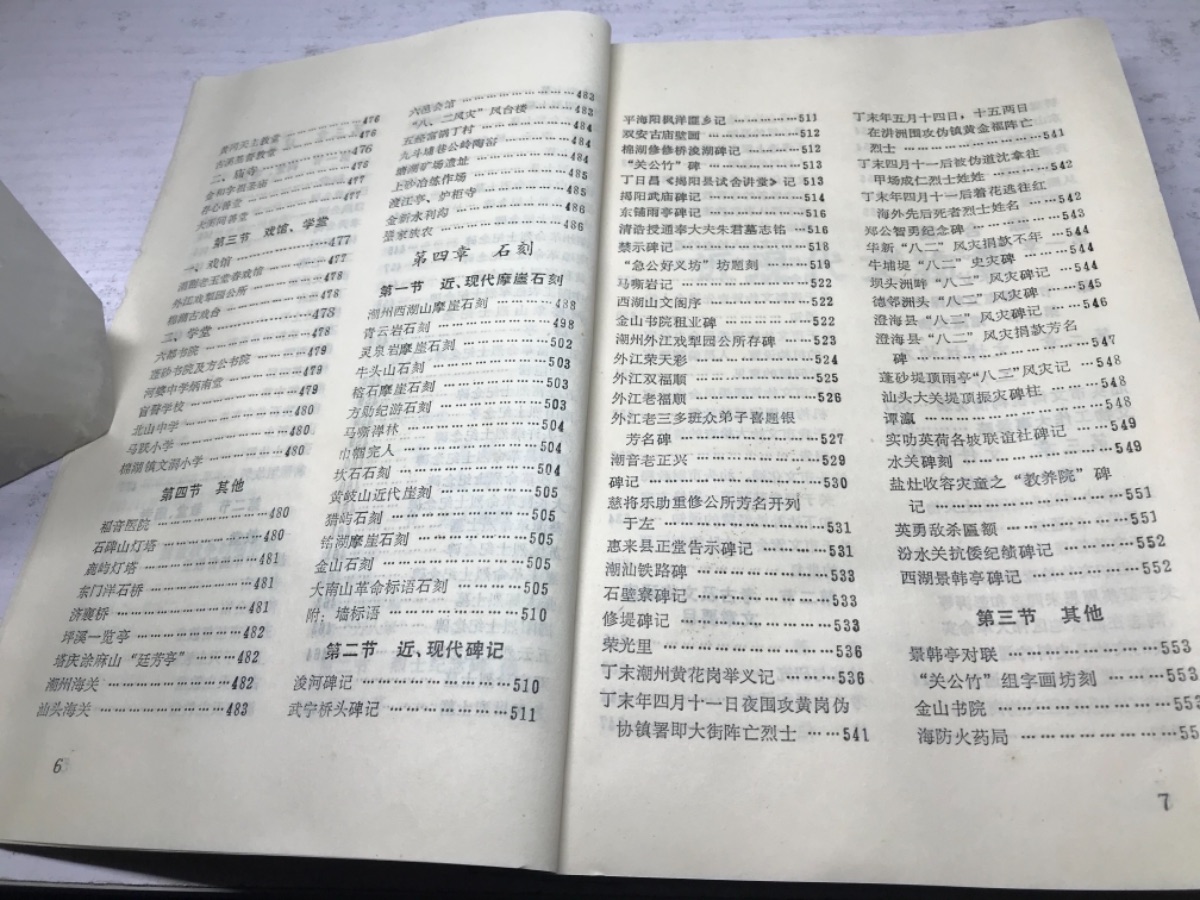 黄冈天主教堂 …………476
古巷基督教堂 …………476
二、庙寺 …………476
存心善堂 …………477
大寮同善堂 …………477
第三节 戏馆、学堂
一、戏馆 …………477
潮剧老玉堂春戏馆 ……477
外江戏梨园公所 ………478
棉湖古戏台 …………478
二、学堂 …………478
六都书院 …………478
蓬砂书院及方公书院 ……479
河婆中学炳南堂 ………479
盲聋学校 …………479
北山中学 …………480
马联小学 …………480
棉湖镇文祠小学 ………480
第四节 其他
福音医院 …………480
石碑山灯塔 …………480
鹿屿灯塔 …………481
东门洋石桥 …………481
济襄桥 …………481
坪溪一览亭 …………482
塔庆涂麻山“廷芳亭” ……482
潮州海关 …………482
汕头海关 …………483
6
六邑会馆 …………483
“八、二风灾”风台楼 ……483
五经富滴丁村 …………484
九斗埔巷公岭陶窑 ……484
塘湖矿场遗址 …………484
上砂冶炼作场 …………485
渡江亭、炉柜寺 ………485
金新水利沟 …………486
壁家族农 …………486
第四章 石刻
第一节 近、现代摩崖石刻
潮州西湖山摩崖石刻 ……488
青云岩石刻 …………498
灵泉岩摩崖石刻 ………502
牛头山石刻 …………503
榕石摩崖石刻 …………503
方勋纪游石刻 …………503
马嘶禅林 …………504
巾帼完人 …………504
坎石石刻 …………504
黄岐山近代崖刻 ………505
猎屿石刻 …………505
铭湖摩崖石刻 …………505
金山石刻 …………505
大南山革命标语石刻 ……505
附：墙标语 …………510
第二节 近、现代碑记
浚河碑记 …………510
武宁桥头碑记 …………511
平海阳枫洋匪乡记 ……511
双安古庙壁画 …………512
棉湖修修桥浚湖碑记 ……512
“关公竹”碑 …………513
丁日昌《揭阳县试舍讲堂》记 513
揭阳武庙碑记 …………514
东铺雨亭碑记 …………516
清诰授通奉大夫朱君墓志铭 …516
禁示碑记 …………518
“急公好义坊”坊题刻 ……519
马嘶岩记 …………522
西湖山文阁序 …………522
金山书院租业碑 ………522
潮州外江戏梨园公所存碑 …523
外江荣天彩 …………524
外江双福顺 …………525
外江老福顺 …………526
外江老三多班众弟子喜题银
芳名碑 …………527
潮音老正兴 …………529
碑记 …………530
慈将乐助重修公所芳名开列
于左 …………531
惠来县正堂告示碑记 ……531
潮汕铁路碑 …………533
石壁寮碑记 …………533
修堤碑记 …………533
荣光里 …………536
丁未潮州黄花岗举义记 ……536
丁未年四月十一日夜围攻黄岗伪
协镇署即大街阵亡烈士 ……541
丁未年五月十四日，十五两日
在洪洲围攻伪镇黄金福阵亡
烈士 …………541
丁未四月十一后被伪道沈拿往
甲场成仁烈士姓姓 ……542
丁未年四月十一后着花逃往红
海外先后死者烈士姓名 ……542
郑公智勇纪念碑 ………543
华新“八二”风灾捐款不年 ……544
牛埔堤“八二”史灾碑 ……544
坝头洲畔“八二”风灾碑记 …544
德邻洲头“八二”风灾碑 ……545
澄海县“八二”风灾碑记 ……546
澄海县“八二”风灾捐款芳名
碑 …………547
蓬砂堤顶雨亭“八二”风灾记 …548
汕头大关堤顶振灾碑柱 ……548
谭瀛 …………548
实叻英荷各坡联谊社碑记 ……549
水关碑刻 …………549
盐灶收容灾童之“教养院”碑
记 …………551
英勇敌杀匾额 …………551
汾水关抗倭纪绩碑记 ……552
西湖景韩亭碑记 ………552
第三节 其他
景韩亭对联 …………553
“关公竹”组字画坊刻 ……553
金山书院 …………553
海防火药局 …………55
7